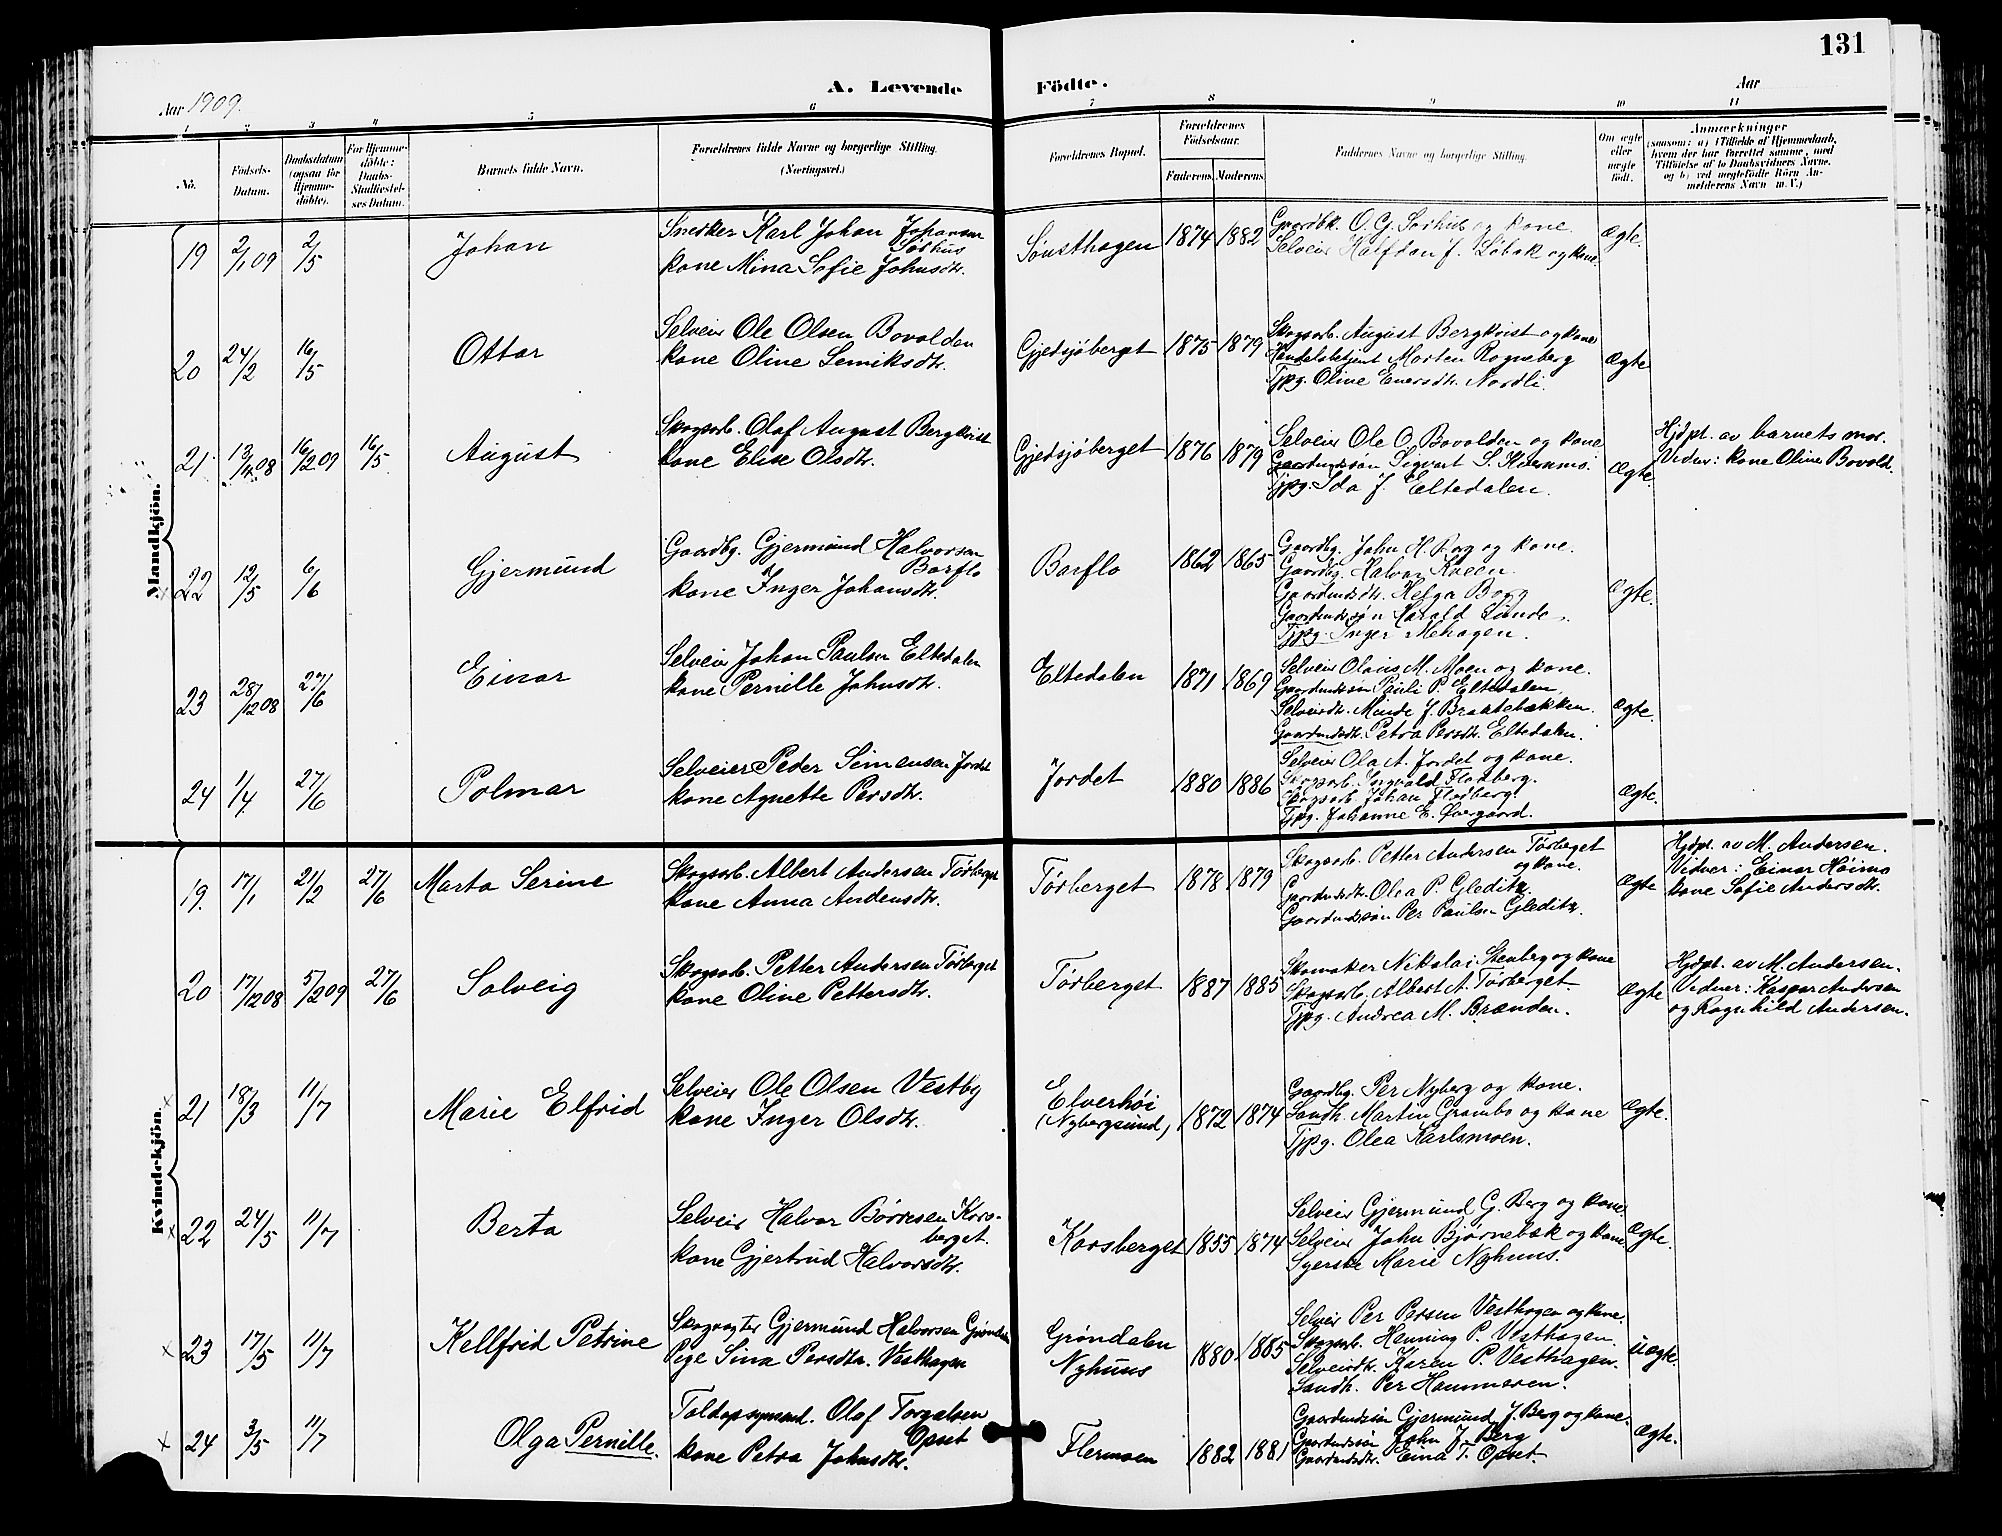 131
A. Levende Födte.
Aar 1909.
Aar
1 2 3 4 5 6 7 8 9 10 11
No.
Födsels-Datum.
Daabsdatum (ogsaa for Hjemme-döbte).
For Hjemme-döbte: Daabs-Stadfæstel-ses Datum.
Barnets fulde Navn.
Forældrenes fulde Navne og borgerlige Stilling. (Næringsvei.)
Forældrenes Bopæl.
Forældrenes Födselsaar.
Faderens Moderens
Faddernes Navne og borgerlige Stilling.
Om ægte eller uægte födt.
Anmærkninger
(saasom: a) i Tilfælde af Hjemmedaab,
hvem der har forrettet samme, med
Tilföielse af to Daabsvidners Navne.
og b) ved uægtefödte Börn An-
melderens Navn m. V.)
Mandkjön.
19 2/1 09 2/5 Johan
Snedker Karl Johan Johansen Sørhus
kone Mina Sofie Johnsdtr.
Sønsthagen 1874 1882
Gaardbr. O. G. Sørhus og kone
Selveier Halfdan J. Løbak og kone.
Ægte.
20 24/2 16/5 Ottar
Selveier Ole Olsen Bovolden
kone Oline Semiksdtr.
Gjedsjøberget 1875 1879
Skogsarb. August Bergkvist og kone
Handelsbetjent Morten Rogneberg
Tjpg. Oline Enersdtr. Nordli.
Ægte
21 13/4 08 16/2 09 16/5 August
Skogsarb. Olaf August Bergkvist
kone Elise Olsdtr.
Gjedsjøberget 1876 1879
Selveier Ole O. Bovolden og kone
Gaardmdssøn Sigvart S. Kvernmo.
Tjpg. Ida J. Eltedalen.
Ægte.
Hjdpt. av barnets mor.
Vidner: kone Oline Bovold.
22 12/5 6/6 Gjermund
Gaardbg. Gjermund Halvorsen Borflo
kone Inger Johansdtr.
Borflo 1862 1865
Gaardbg. John H. Borg og kone.
Gaardbg. Halvor Kveen.
Gaardmdsdtr. Helga Borg
Gaardmdssøn Harald Lunde.
Tjpg. Inger Mehagen.
Ægte.
23 28/12 08 27/6 Einar
Selveier Johan Paulsen Eltedalen
kone Pernille Johnsdtr.
Eltedalen 1871 1869
Selveier Olaus M. Moen og kone.
Gaardmdssøn Pauli P. Eltedalen.
Selveierdtr. Minda J. Braatebækken.
Gaardmdsdtr. Petra Persdtr. Eltedalen.
Ægte.
24 1/4 27/6 Polmar
Selveier Peder Simensen Jordet
kone Agnette Persdtr.
Jordet 1880 1886
Selveier Ola A. Jordet og kone.
Skogsarb. Ingvald Flodberg.
Skogsarb. Johan Flodberg.
Tjpg. Johanne E. Øvergaard.
Ægte.
Kvindekjön.
19. 17/1 21/2 27/6 Marta Serine
Skogsarb. Albert Andersen Tørberget
kone Anna Andersdtr.
Tørberget 1878 1879
Skogsarb. Petter Andersen Tørberget og kone.
Gaardmdsdtr. Olea P. Gleditz.
Gaardmdssøn Per Paulsen Gleditz.
Ægte
Hjdpt. av M. Andersen.
Vidner: Einar Høimo
kone Sofie Andersdtr.
20 17/12 08 5/2 09 27/6 Solveig
Skogsarb. Petter Andersen Tørberget
kone Oline Pettersdtr.
Tørberget 1887 1885
Skomaker Nikolai Stenberg og kone
Skogsarb. Albert A. Tørberget.
Tjpg. Andrea M. Brænden.
Ægte
Hjdpt. av M. Andersen.
Vidner: Kaspar Andersen
og Ragnhild Andersen.
x 21 18/3 11/7 Marie Elfrid
Selveier Ole Olsen Vestby
kone Inger Olsdtr.
Elverhøi (Nybergsund) 1872 1874
Gaardbg. Per Nyberg og kone.
Landh. Martin Grambo og kone
Tjpg. Olea Karlsmoen.
Ægte.
x 22 24/5 11/7 Berta
Selveier Halvor Børresen Kors-
berget.
kone Gjertrud Halvorsdtr.
Korsberget 1855 1874
Selveier Gjermund G. Berg og kone
Selveier John Bjørnebæk og kone
Syerske Marie Nyhuus.
Ægte.
x 23 17/5 11/7 Kellfrid Petrine
Skogvogter Gjermund Halvorsen Grøndalen
Pige Sina Persdtr. Vesthagen
Grøndalen
Nyhuus 1880 1885
Selveier Per Persen Vesthagen og kone.
Skogsarb. Henning P. Vesthagen.
Selveierdtr. Karen P. Vesthagen.
Landh. Per Hammeren.
Uægte.
x 24 3/5 11/7 Olga Pernille.
Toldopsynsmd. Olaf Torgalsen Opset
kone Petra Johnsdtr.
Flermoen 1882 1881
Gaardmdssøn Gjermund J. Berg og kone.
Gaardmdssøn John J. Berg
Gaardmdsdtr. Eina T. Opset.
Ægte.